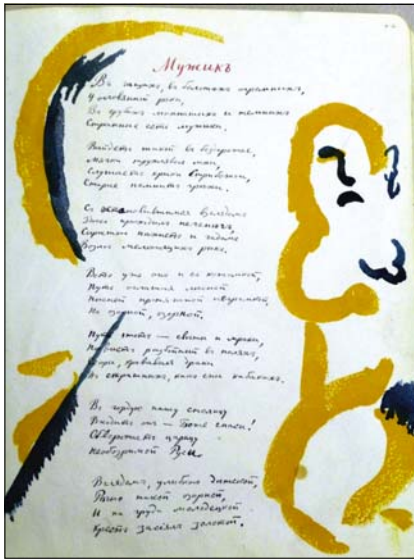 Мужикъ
Въ чащахъ, въ болотахъ огромныхъ,
У оловянной рѣки,
Въ срубахъ мохнатыхъ и темныхъ
Странные есть мужики.
Выйдетъ такой въ бездорожье,
мхи,
Слушаетъ крики Стрибожьи,
Старые помнитъ грѣхи.
Съ остановившимся взглядомъ
Здѣсь проходилъ печенѣгъ,
Сыростью пахнетъ и гадомъ
Возлѣ мелѣющихъ рѣкъ.
Вотъ уже онъ и съ котомкой,
Путь оглашая лѣсной
Пѣсней протяжной негромкой,
Но озорной, озорной.
Путь этотъ — свѣты и мраки,
Посвистъ разбойный въ поляхъ,
Ссоры, кровавыя драки
Въ страшныхъ, какъ сны кабакахъ.
Въ гордую нашу столицу
Входитъ онъ — Боже спаси!
Обворожаетъ царицу
Необозримой Руси
Взглядомъ, улыбкою дѣтской,
Рѣчью такой озорной,
И на груди молодецкой
Крестъ засіялъ золотой.